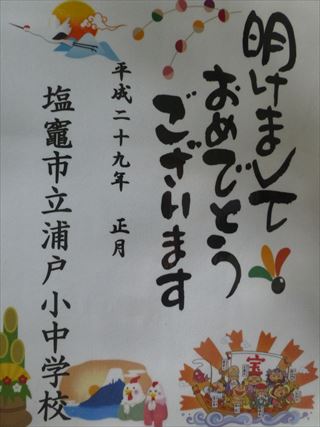 明けまして
おめでとう
ございます
平成二十九年 正月
塩竈市立浦戸小中学校
宝